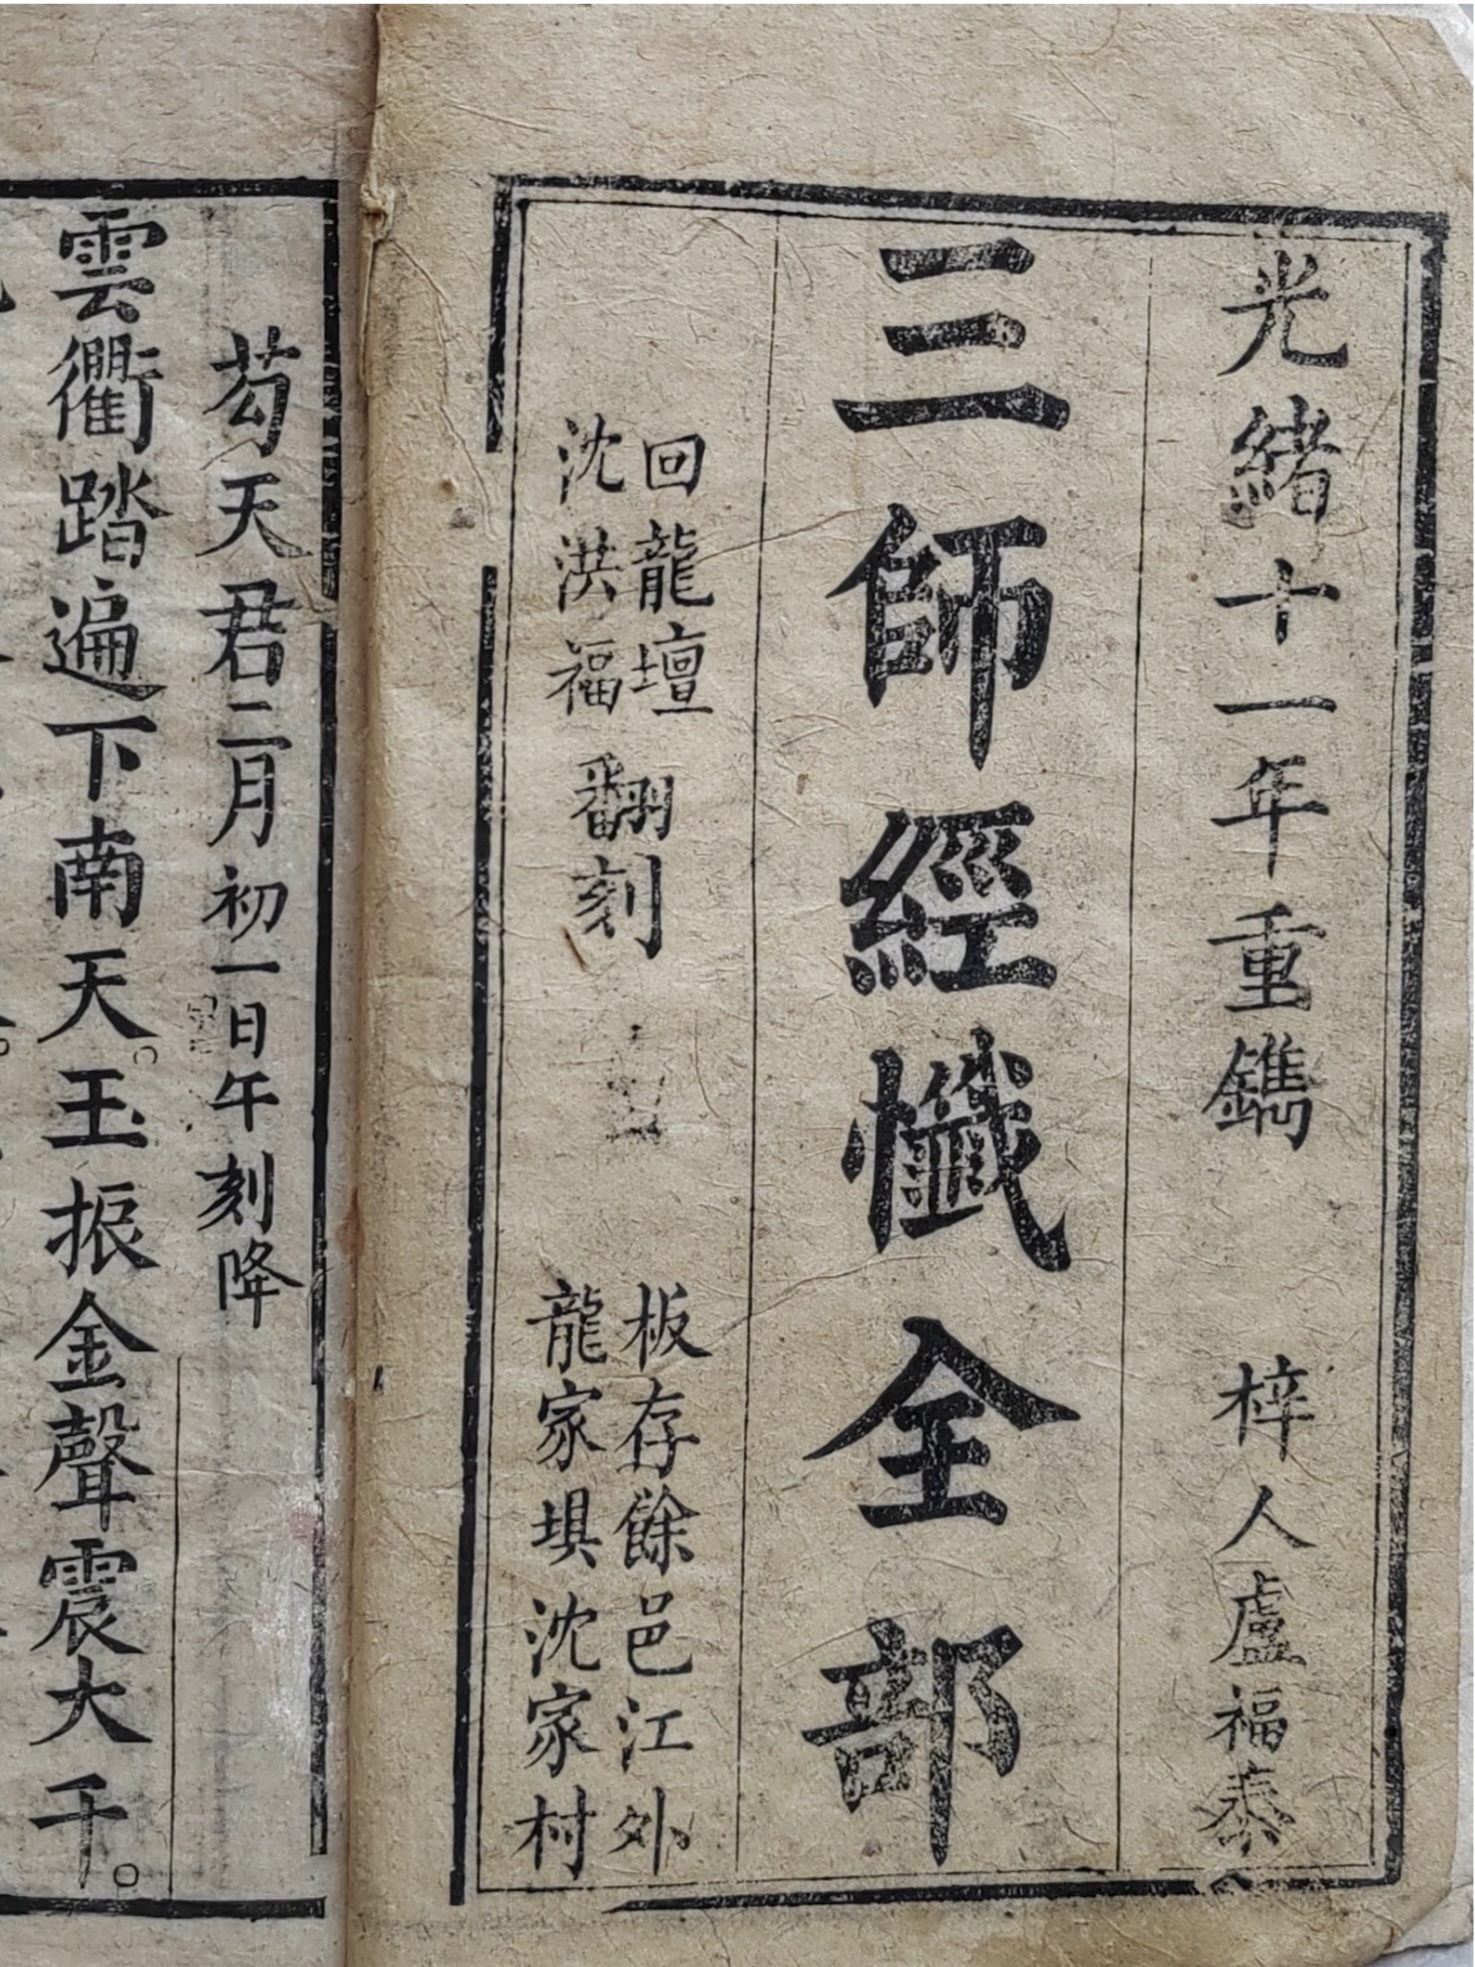 光緒十一年重鐫　梓人盧福泰
三師經懺全部
回龍壇
沈洪福
翻刻
板存餘邑江外
龍家埧沈家村
芶天君二月初一日午刻降
雲衢踏遍下南天。玉振金聲震大千。